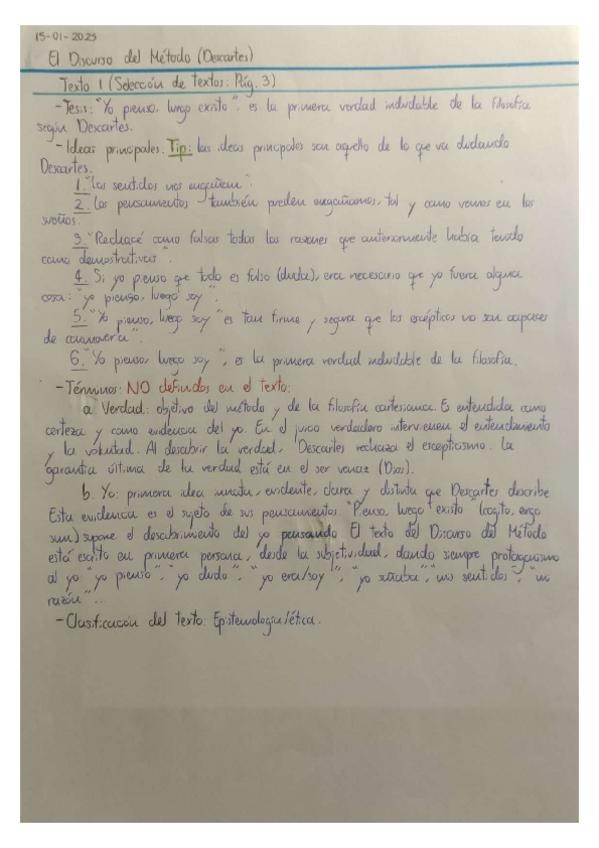 15-01-2023
El Discurso del Método (Descartes)
Texto 1 (Selección de textos: Pág. 3)
- Tesis: "Yo pienso, luego existo", es la primera verdad indudable de la filosofía
según Descartes.
- Ideas principales. Tip: las ideas principales son aquello de lo que va dudando
Descartes.
1. "Los sentidos nos engañan".
2. Los pensamientos también pueden engañarnos, tal y como vemos en los
sueños.
3. "Rechacé como falsas todas las razones que anteriormente había tenido
como demostrativas".
4. Si yo pienso que todo es falso (duda), era necesario que yo fuera alguna
cosa: "yo pienso, luego soy".
5. "Yo pienso, luego soy" es tan firme y segura que los escépticos no son capaces
de conmoverla".
6. "Yo pienso, luego soy", es la primera verdad indudable de la filosofía.
- Términos: NO definidos en el texto:
a. Verdad: objetivo del método y de la filosofía cartesiana. Es entendida como
certeza y como evidencia del yo. En el juicio verdadero intervienen el entendimiento
y la voluntad. Al descubrir la verdad, Descartes rechaza el escepticismo. La
garantía última de la verdad está en el ser veraz (Dios).
b. Yo: primera idea innata, evidente, clara y distinta que Descartes describe
Esta evidencia es el sujeto de sus pensamientos. "Pienso, luego existo" (cogito, ergo
sum) supone el descubrimiento del yo pensando. El texto del Discurso del Método
está escrito en primera persona, desde la subjetividad, dando siempre protagonismo
al yo "yo pienso", "yo dudo", "yo era/soy", "yo soñaba", "mis sentidos", "mi
razón"...
- Clasificación del texto: Epistemología/ética.